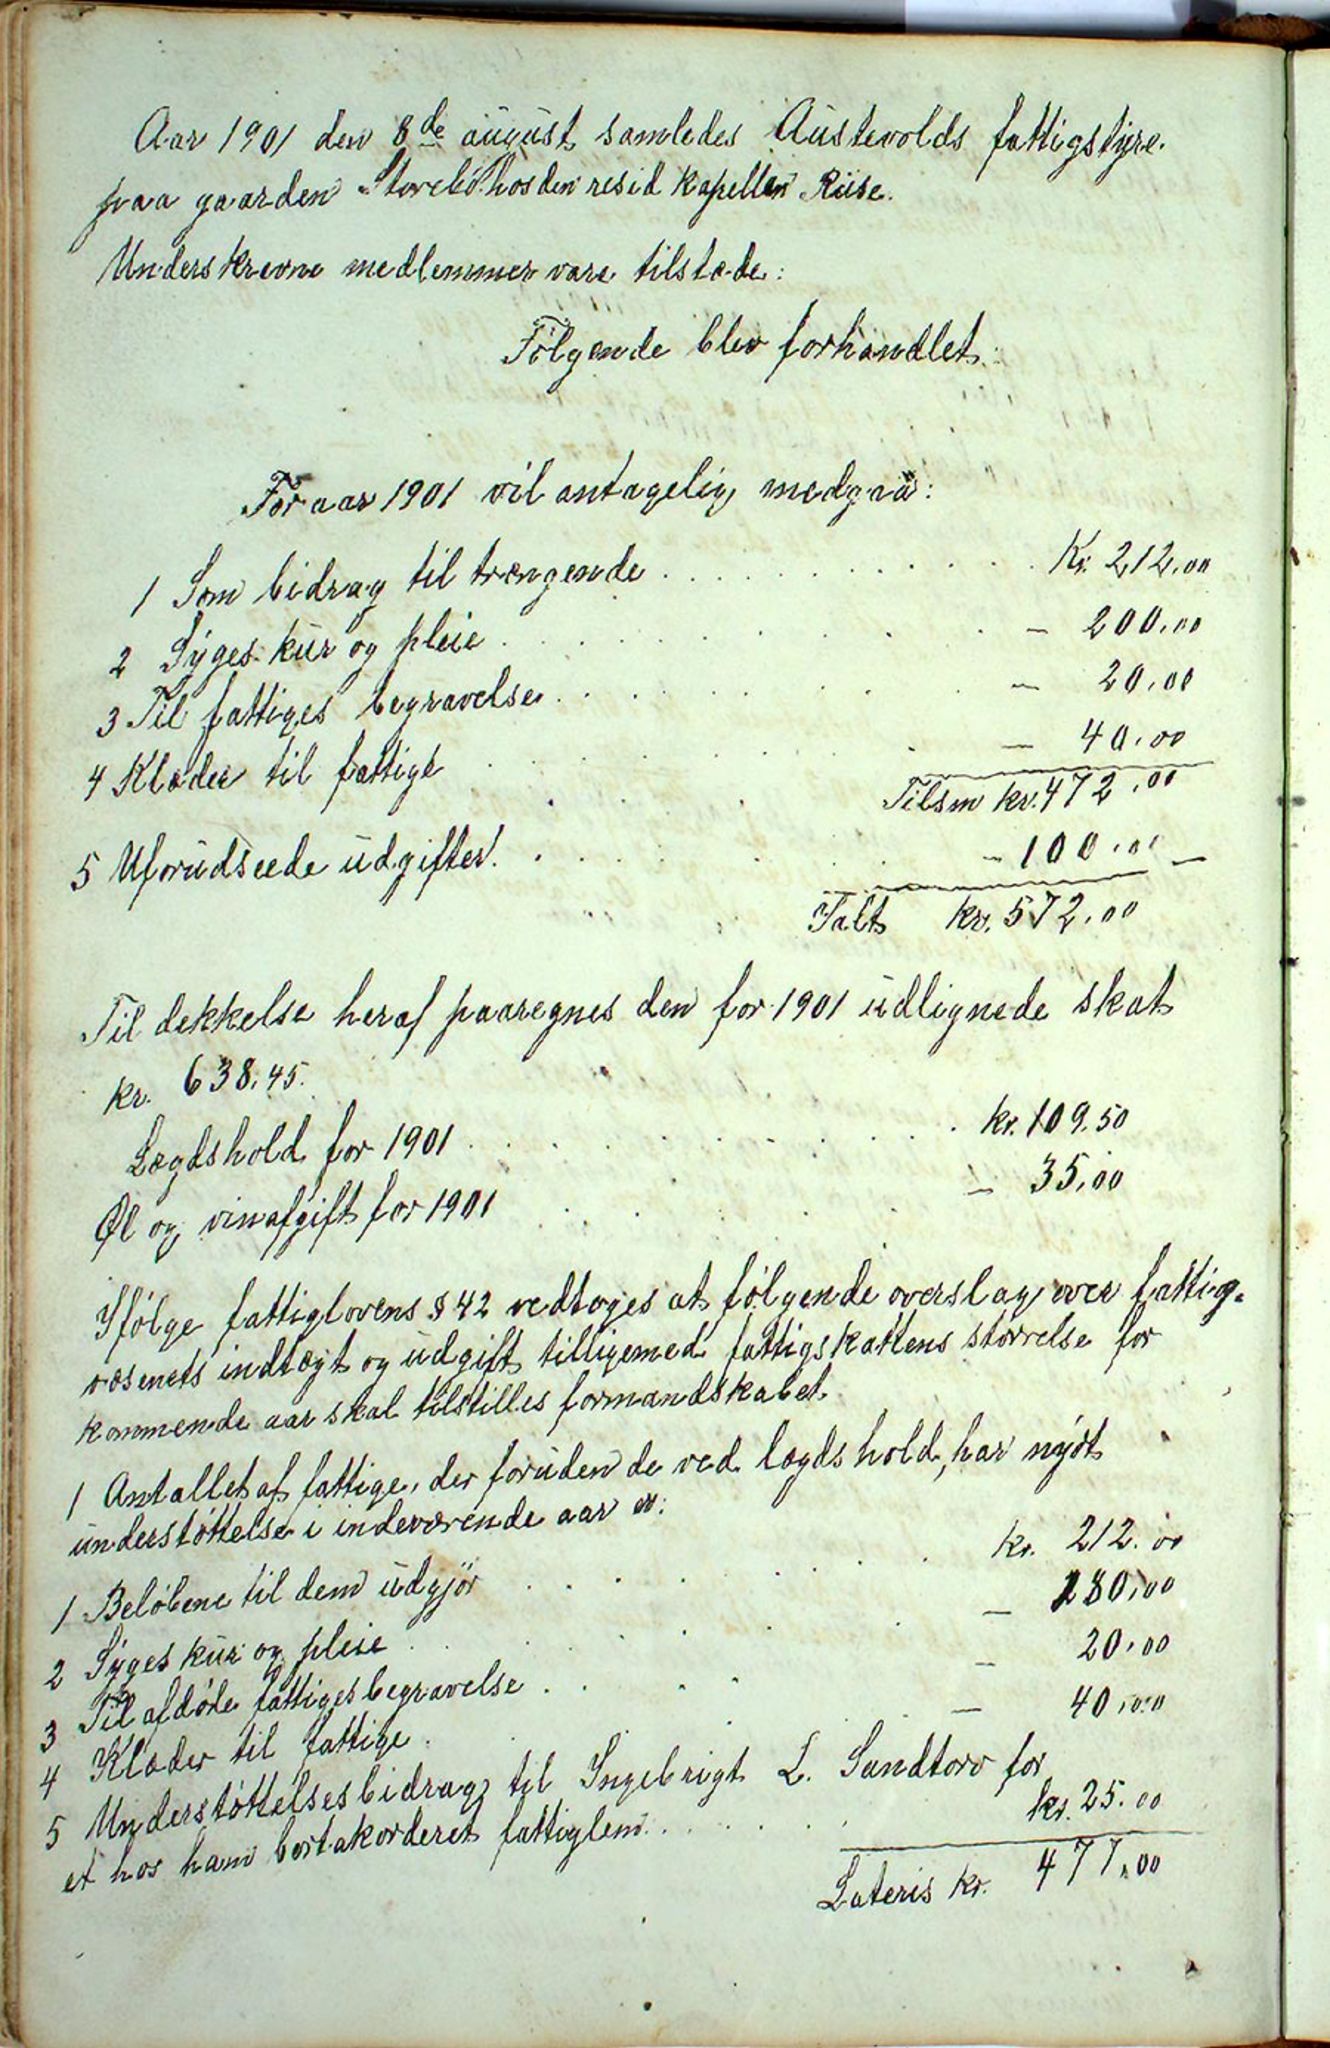 Aar 1901 den 8de august samledes Austevolds fattigstyre
paa gaarden Storebö hos den resid kapellan Riise.
Underskrevne medlemmer vare tilstæde:
Fölgende blev forhandlet:
For aar 1901 vil antagelig medgaa:
1 Som bidrag til trængende . . . . . . . . . . . . Kr. 212.00
2 Syges kur og pleie . . . . . . . . . . . - 200.00
3 Til fattiges begravelse . . . . . . . . . - 20.00
4 Klæder til fattige . . . . . . . - 40.00
Tilsm kr. 472.00
5 Uforudseede udgifter . . . . . . . - 100.00 -
Ialt kr. 572.00
Til dekkelse heraf paaregnes den for 1901 udlignede skat
kr. 638.45.
Lægdshold for 1901 . . . . . . . . . . . kr. 109.50
Øl og vinafgift for 1901 . . . . . . . - 35.00
Ifølge fattiglovens § 42 vedtoges at følgende overslag over fattig-
væsenets indtægt og udgift tilligemed fattigskattens störrelse for
kommende aar skal tilstilles formandskabet.
1 Antallet af fattige, der foruden de ved lægdshold, har nydt
understöttelse i indeværende aar er:
1 Belöbene til dem udgjör . . . . . . . . kr. 212.00
2 Syges kur og pleie . . . . . . . . - 180.00
3 Til afdöde fattiges begravelse . . . . . - 20.00
4 Klæder til fattige . . - 40.00
5 Understöttelsesbidrag til Ingebrigt L. Sandtorv for
et hos ham bortakorderet fattiglem . . . . . . kr. 25.00
Lateris kr. 477.00